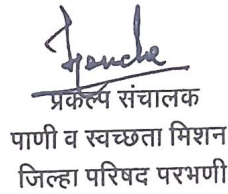 प्रकल्प संचालक
पाणी व स्वच्छता मिशन
जिल्हा परिषद परभणी